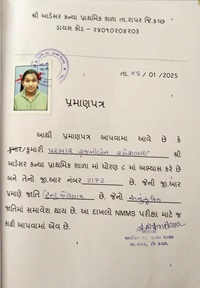 શ્રી આડેસર કન્યા પ્રાથમિક શાળા તા.રાપર જિ.કચ્છ
ડાયસ કોડ - ૨૪૦૧૦૨૦૪૨૦૩
તા. ૦૩ / 01 / 2025
પ્રમાણપત્ર
આથી પ્રમાણપત્ર આપવામાં આવે છે કે
કુમાર/કુમારી પરમાર શ્રી
આડેસર કન્યા પ્રાથમિક શાળા માં ધોરણ ૮ માં અભ્યાસ કરે છે
અને તેનો જી.આર નંબર છે. જેની જી.આર
પ્રમાણે જાતિ હિન્દુ છે. જેનો
જાતિમાં સમાવેશ થાય છે. આ દાખલો NMMS પરીક્ષા માટે જ
કાઢી આપવામાં આવે છે.